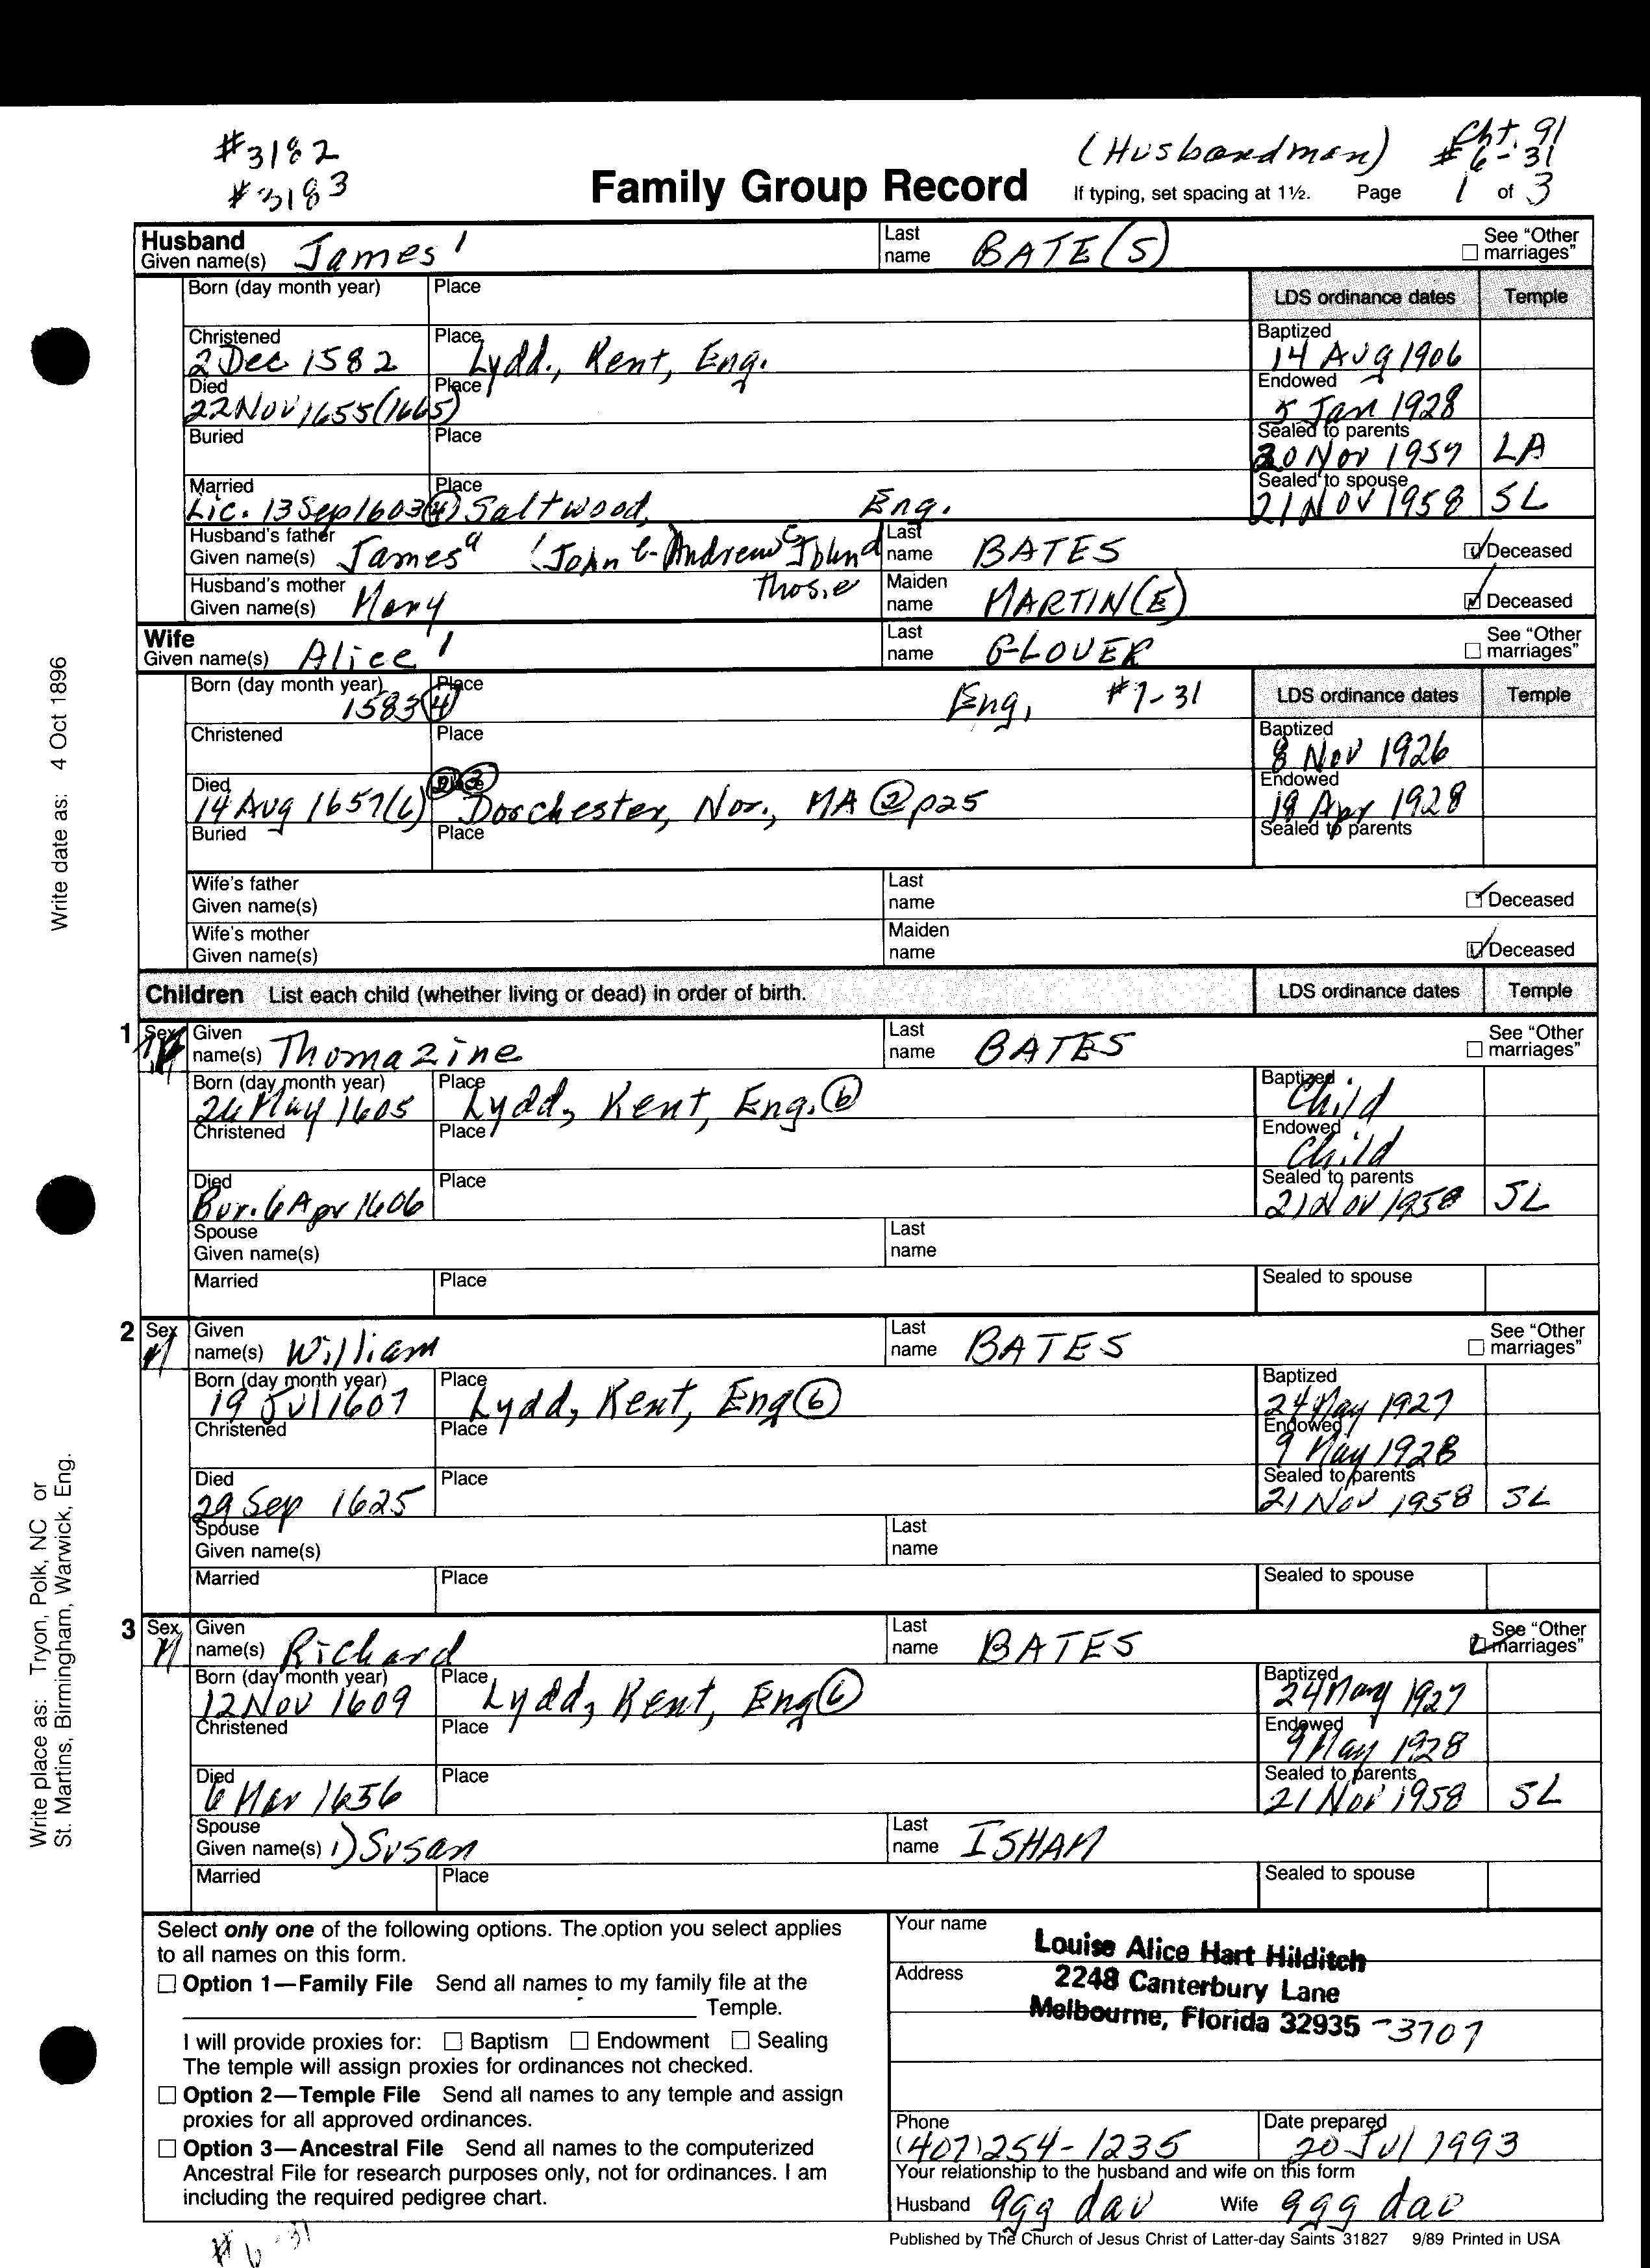 #3182
#3183
(Husbandman)
Cht. 91
#6-31
Family Group Record
If typing, set spacing at 1½. Page 1 of 3
Husband
Given name(s) James 1
Last name BATE(S)
See "Other marriages"
Born (day month year) Place
LDS ordinance dates Temple
Christened 2 Dec 1582 Place Lydd., Kent, Eng.
Baptized 14 Aug 1906
Died 22 Nov 1655 (1665) Place
Endowed 5 Jan 1928
Buried Place
Sealed to parents 20 Nov 1957 LA
Married Lic. 13 Sep 1603 (4) Place Saltwood, Eng.
Sealed to spouse 21 Nov 1958 SL
Husband's father
Given name(s) James a (John b- Andrew c John d
Thos. e
Last name BATES
Deceased
Husband's mother
Given name(s) Mary
Maiden name MARTIN(E)
Deceased
Wife
Given name(s) Alice 1
Last name GLOVER
See "Other marriages"
Born (day month year) 1583 (4) Place Eng, #7-31
LDS ordinance dates Temple
Christened Place
Baptized 8 Nov 1926
Died 14 Aug 1657(6) Place Dorchester, Nor., MA (2) p25
Endowed 18 Apr 1928
Buried Place
Sealed to parents
Wife's father
Given name(s)
Last name
Deceased
Wife's mother
Given name(s)
Maiden name
Deceased
Children List each child (whether living or dead) in order of birth.
LDS ordinance dates Temple
1 Sex
Given name(s) Thomazine
Last name BATES
See "Other marriages"
Born (day month year) 26 May 1605 Place Lydd, Kent, Eng. (6)
Baptized Child
Christened Place
Endowed Child
Died Bur. 6 Apr 1606 Place
Sealed to parents 21 Nov 1958 SL
Spouse
Given name(s)
Last name
Married Place
Sealed to spouse
2 Sex M
Given name(s) William
Last name BATES
See "Other marriages"
Born (day month year) 19 Jul 1607 Place Lydd, Kent, Eng (6)
Baptized 24 May 1927
Christened Place
Endowed 9 May 1928
Died 29 Sep 1625 Place
Sealed to parents 21 Nov 1958 SL
Spouse
Given name(s)
Last name
Married Place
Sealed to spouse
3 Sex M
Given name(s) Richard
Last name BATES
See "Other marriages"
Born (day month year) 12 Nov 1609 Place Lydd, Kent, Eng (6)
Baptized 24 May 1927
Christened Place
Endowed 9 May 1928
Died 6 Mar 1656 Place
Sealed to parents 21 Nov 1958 SL
Spouse
Given name(s) 1) Susan
Last name ISHAM
Married Place
Sealed to spouse
Select only one of the following options. The option you select applies
to all names on this form.
Option 1—Family File Send all names to my family file at the
Temple.
I will provide proxies for: Baptism Endowment Sealing
The temple will assign proxies for ordinances not checked.
Option 2—Temple File Send all names to any temple and assign
proxies for all approved ordinances.
Option 3—Ancestral File Send all names to the computerized
Ancestral File for research purposes only, not for ordinances. I am
including the required pedigree chart.
Your name Louise Alice Hart Hilditch
Address 2248 Canterbury Lane
Melbourne, Florida 32935 -3707
Phone (407) 254-1235
Date prepared 20 Jul 1993
Your relationship to the husband and wife on this form
Husband ggg dau Wife ggg dau
Published by The Church of Jesus Christ of Latter-day Saints 31827 9/89 Printed in USA
#6-31
Write date as: 4 Oct 1896
Write place as: Tryon, Polk, NC or
St. Martins, Birmingham, Warwick, Eng.